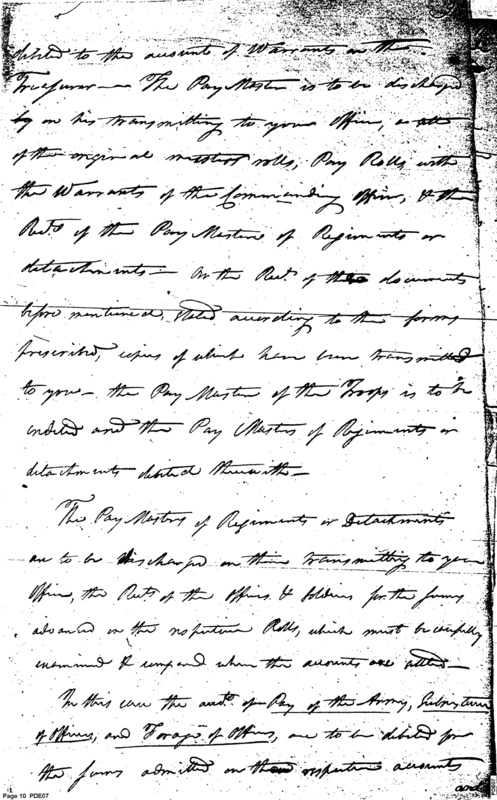 debited to the accounts of Warrants on the
Treasurer — The Pay Master is to be discharged
by on his transmitting to your Office,
of the original muster rolls, Pay Rolls with
the Warrants of the Commanding Officer, & the
Rects of the Pay Masters of Regiments or
detachments — On the Rect. of the documents
before mentioned, stated according to the forms
prescribed, copies of which have been transmitted
to you — the Pay Master of the Troops is to be
credited and the Pay Masters of Regiments or
detachments debited therewith —
The Pay Masters of Regiments or Detachments
are to be discharged on their transmitting to your
Office, the Rects of the officers & Soldiers for the sums
advanced on the respective Rolls, which must be carefully
examined & compared when the accounts are settled —
In this case the accts. of Pay of the Army, Subsistence
of Officers, and Forage of Officers, are to be debited for
the sums admitted on the respective accounts
and
Page 10 PDE07